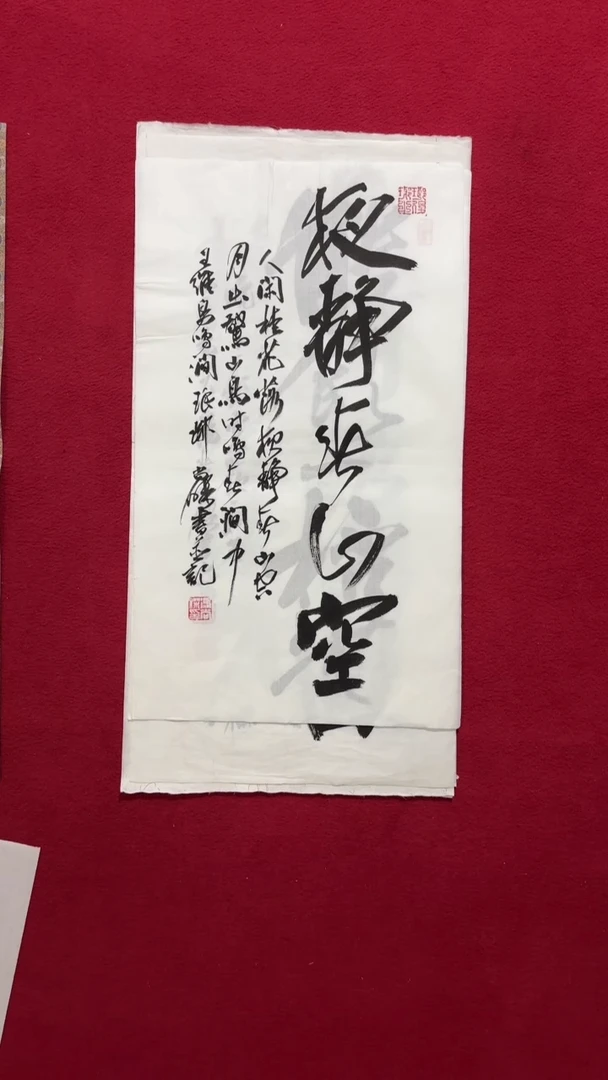 夜静春山空
人闲桂花落夜静春山空
月出惊山鸟时鸣春涧中
王维鸟鸣涧 书并记